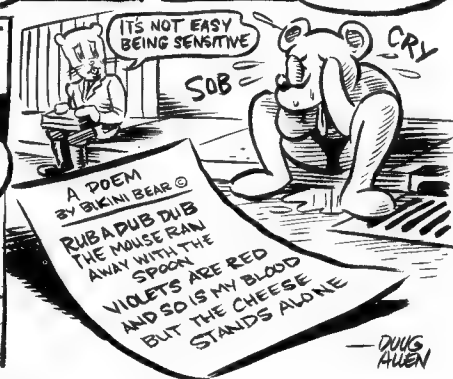 IT'S NOT EASY
BEING SENSITIVE
SOB
CRY
A POEM
BY BIKINI BEAR ©
RUB A DUB DUB
THE MOUSE RAN
AWAY WITH THE
SPOON
VIOLETS ARE RED
AND SO IS MY BLOOD
BUT THE CHEESE
STANDS ALONE
— DOUG
ALLEN